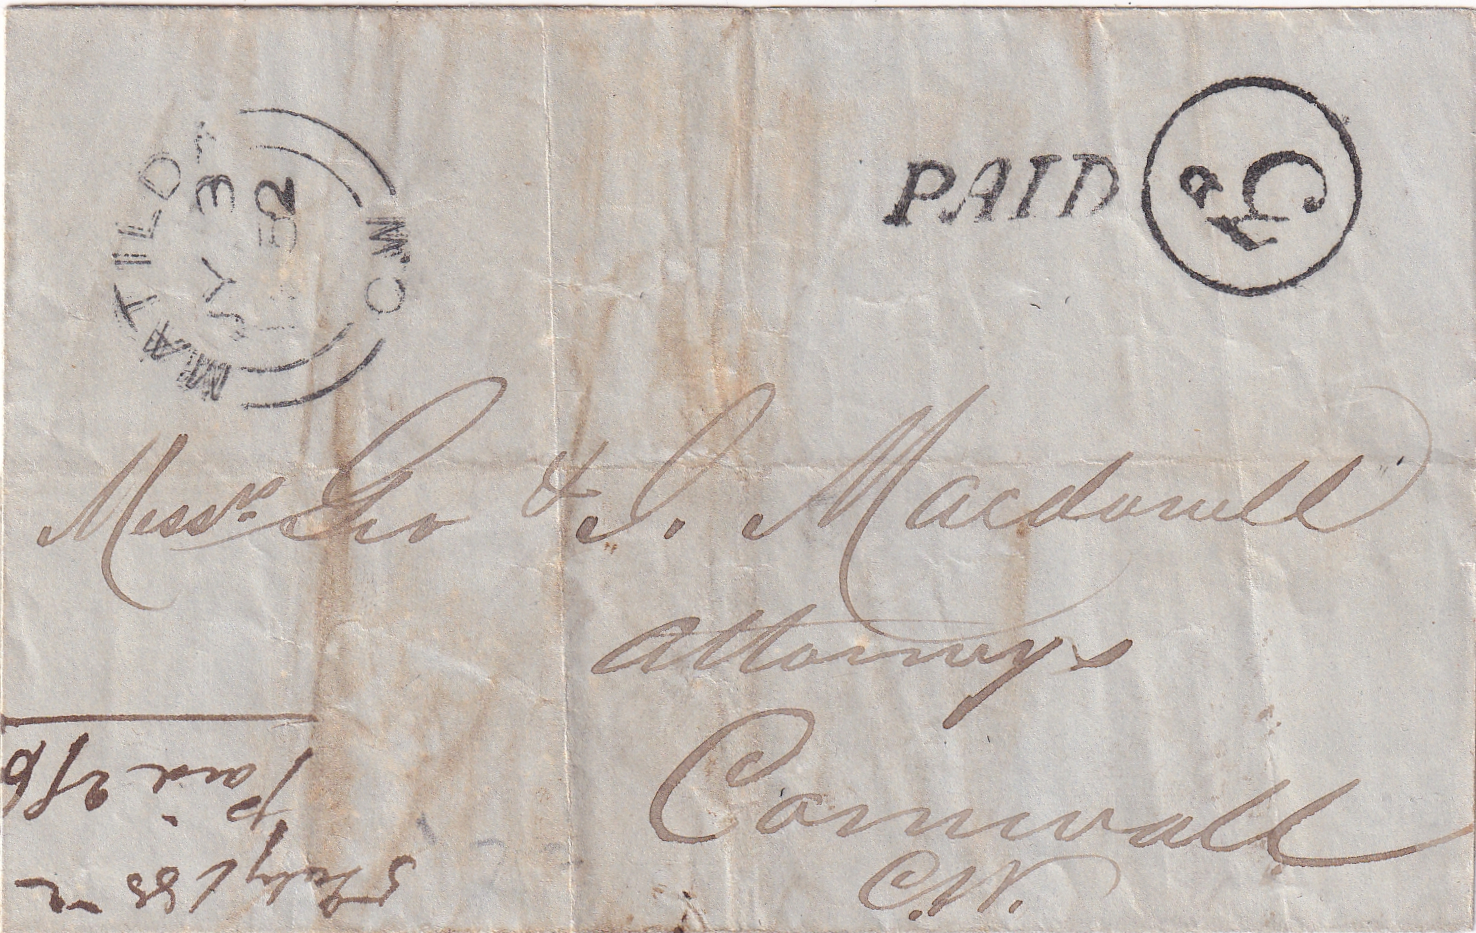 MATILDA C.W
JY 3
1852
PAID
3d
Messrs. Geo & J. Macdonell
Attorneys
Cornwall
C.W.
5 July 1852
Paid 2/6